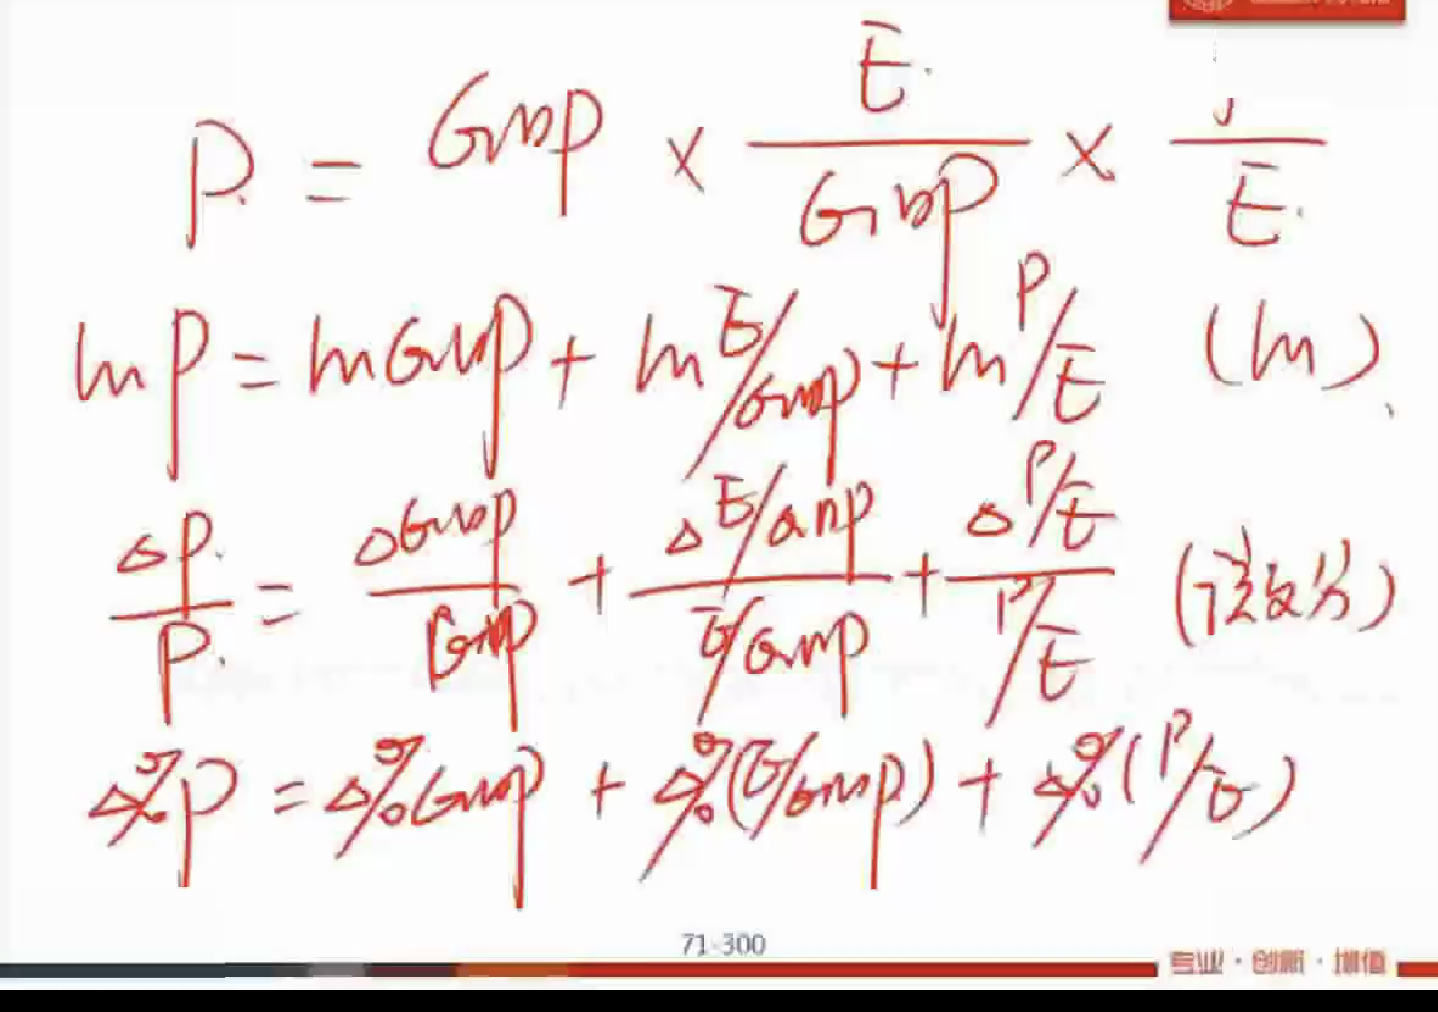 P. = Gnp × E. / Gnp × / E.
ln P = ln Gnp + ln E/Gnp + ln P/E (ln).
ΔP. / P. = ΔGnp / Gnp + ΔE/Gnp / E/Gnp + ΔP/E / P/E (微分)
Δ%P = Δ%Gnp + Δ%(E/Gnp) + Δ%(P/E)
71-300
专业·创新·增值